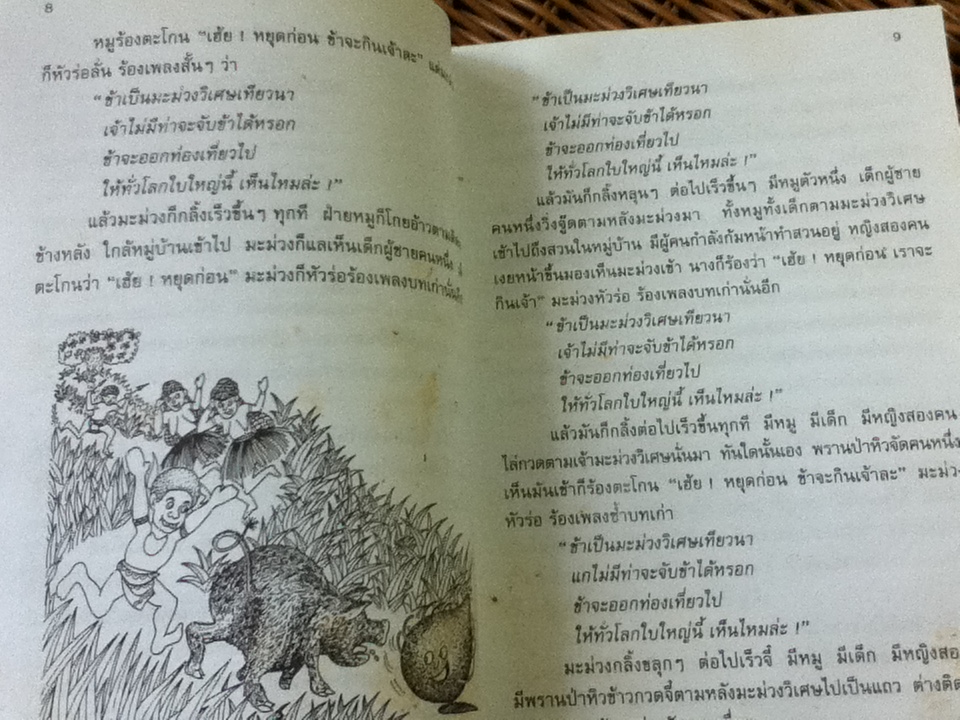 8
หมูร้องตะโกน “เฮ้ย ! หยุดก่อน ข้าจะกินเจ้าละ”
ก็หัวร่อลั่น ร้องเพลงสั้นๆ ว่า
“ข้าเป็นมะม่วงวิเศษเทียวนา
เจ้าไม่มีท่าจะจับข้าได้หรอก
ข้าจะออกท่องเที่ยวไป
ให้ทั่วโลกใบใหญ่นี้ เห็นไหมล่ะ !”
แล้วมะม่วงก็กลิ้งเร็วขึ้นๆ ทุกที ฝ่ายหมูก็โกยอ้าวตาม
ข้างหลัง ใกล้หมู่บ้านเข้าไป มะม่วงก็แลเห็นเด็กผู้ชายคนหนึ่ง
ตะโกนว่า “เฮ้ย ! หยุดก่อน” มะม่วงก็หัวร่อร้องเพลงบทเก่านั้น
9
“ข้าเป็นมะม่วงวิเศษเทียวนา
เจ้าไม่มีท่าจะจับข้าได้หรอก
ข้าจะออกท่องเที่ยวไป
ให้ทั่วโลกใบใหญ่นี้ เห็นไหมล่ะ !”
แล้วมันก็กลิ้งหลุนๆ ต่อไปเร็วขึ้นๆ มีหมูตัวหนึ่ง เด็กผู้ชาย
คนหนึ่งวิ่งจู๊ดตามหลังมะม่วงมา ทั้งหมูทั้งเด็กตามมะม่วงวิเศษ
เข้าไปถึงสวนในหมู่บ้าน มีผู้คนกำลังก้มหน้าทำสวนอยู่ หญิงสองคน
เงยหน้าขึ้นมองเห็นมะม่วงเข้า นางก็ร้องว่า “เฮ้ย ! หยุดก่อน เราจะ
กินเจ้า” มะม่วงหัวร่อ ร้องเพลงบทเก่านั่นอีก
“ข้าเป็นมะม่วงวิเศษเทียวนา
เจ้าไม่มีท่าจะจับข้าได้หรอก
ข้าจะออกท่องเที่ยวไป
ให้ทั่วโลกใบใหญ่นี้ เห็นไหมล่ะ !”
แล้วมันก็กลิ้งต่อไปเร็วขึ้นทุกที มีหมู มีเด็ก มีหญิงสองคน
ไล่กวดตามเจ้ามะม่วงวิเศษนั่นมา ทันใดนั้นเอง พรานป่าหิวจัดคนหนึ่ง
เห็นมันเข้าก็ร้องตะโกน “เฮ้ย ! หยุดก่อน ข้าจะกินเจ้าละ” มะม่วง
หัวร่อ ร้องเพลงซ้ำบทเก่า
“ข้าเป็นมะม่วงวิเศษเทียวนา
แกไม่มีท่าจะจับข้าได้หรอก
ข้าจะออกท่องเที่ยวไป
ให้ทั่วโลกใบใหญ่นี้ เห็นไหมล่ะ !”
มะม่วงกลิ้งขลุกๆ ต่อไปเร็วจี๋ มีหมู มีเด็ก มีหญิงสอง
มีพรานป่าหิวข้าวกวดจี้ตามหลังมะม่วงวิเศษไปเป็นแถว ต่างติด